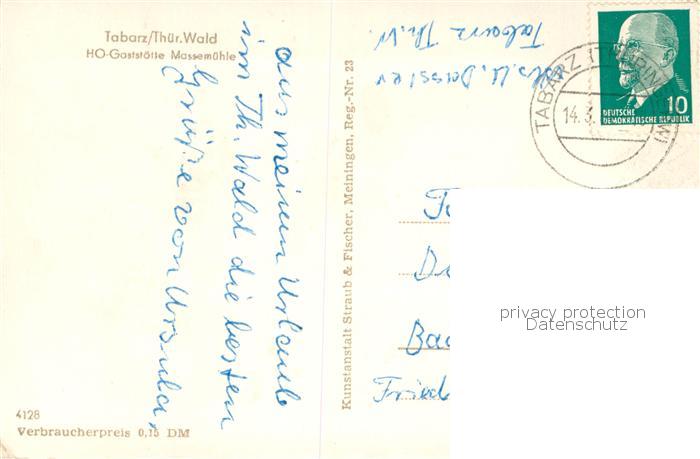 Tabarz/Thür. Wald
HO-Gaststätte Massemühle
aus meinem Urlaub
im Th. Wald die besten
Grüße von Ursula.
4128
Verbraucherpreis 0,15 DM
Kunstanstalt Straub & Fischer, Meiningen, Reg.-Nr. 23
Tabarz Th.W.
TABARZ
14.3.
10
DEUTSCHE
DEMOKRATISCHE REPUBLIK
Fried
privacy protection
Datenschutz